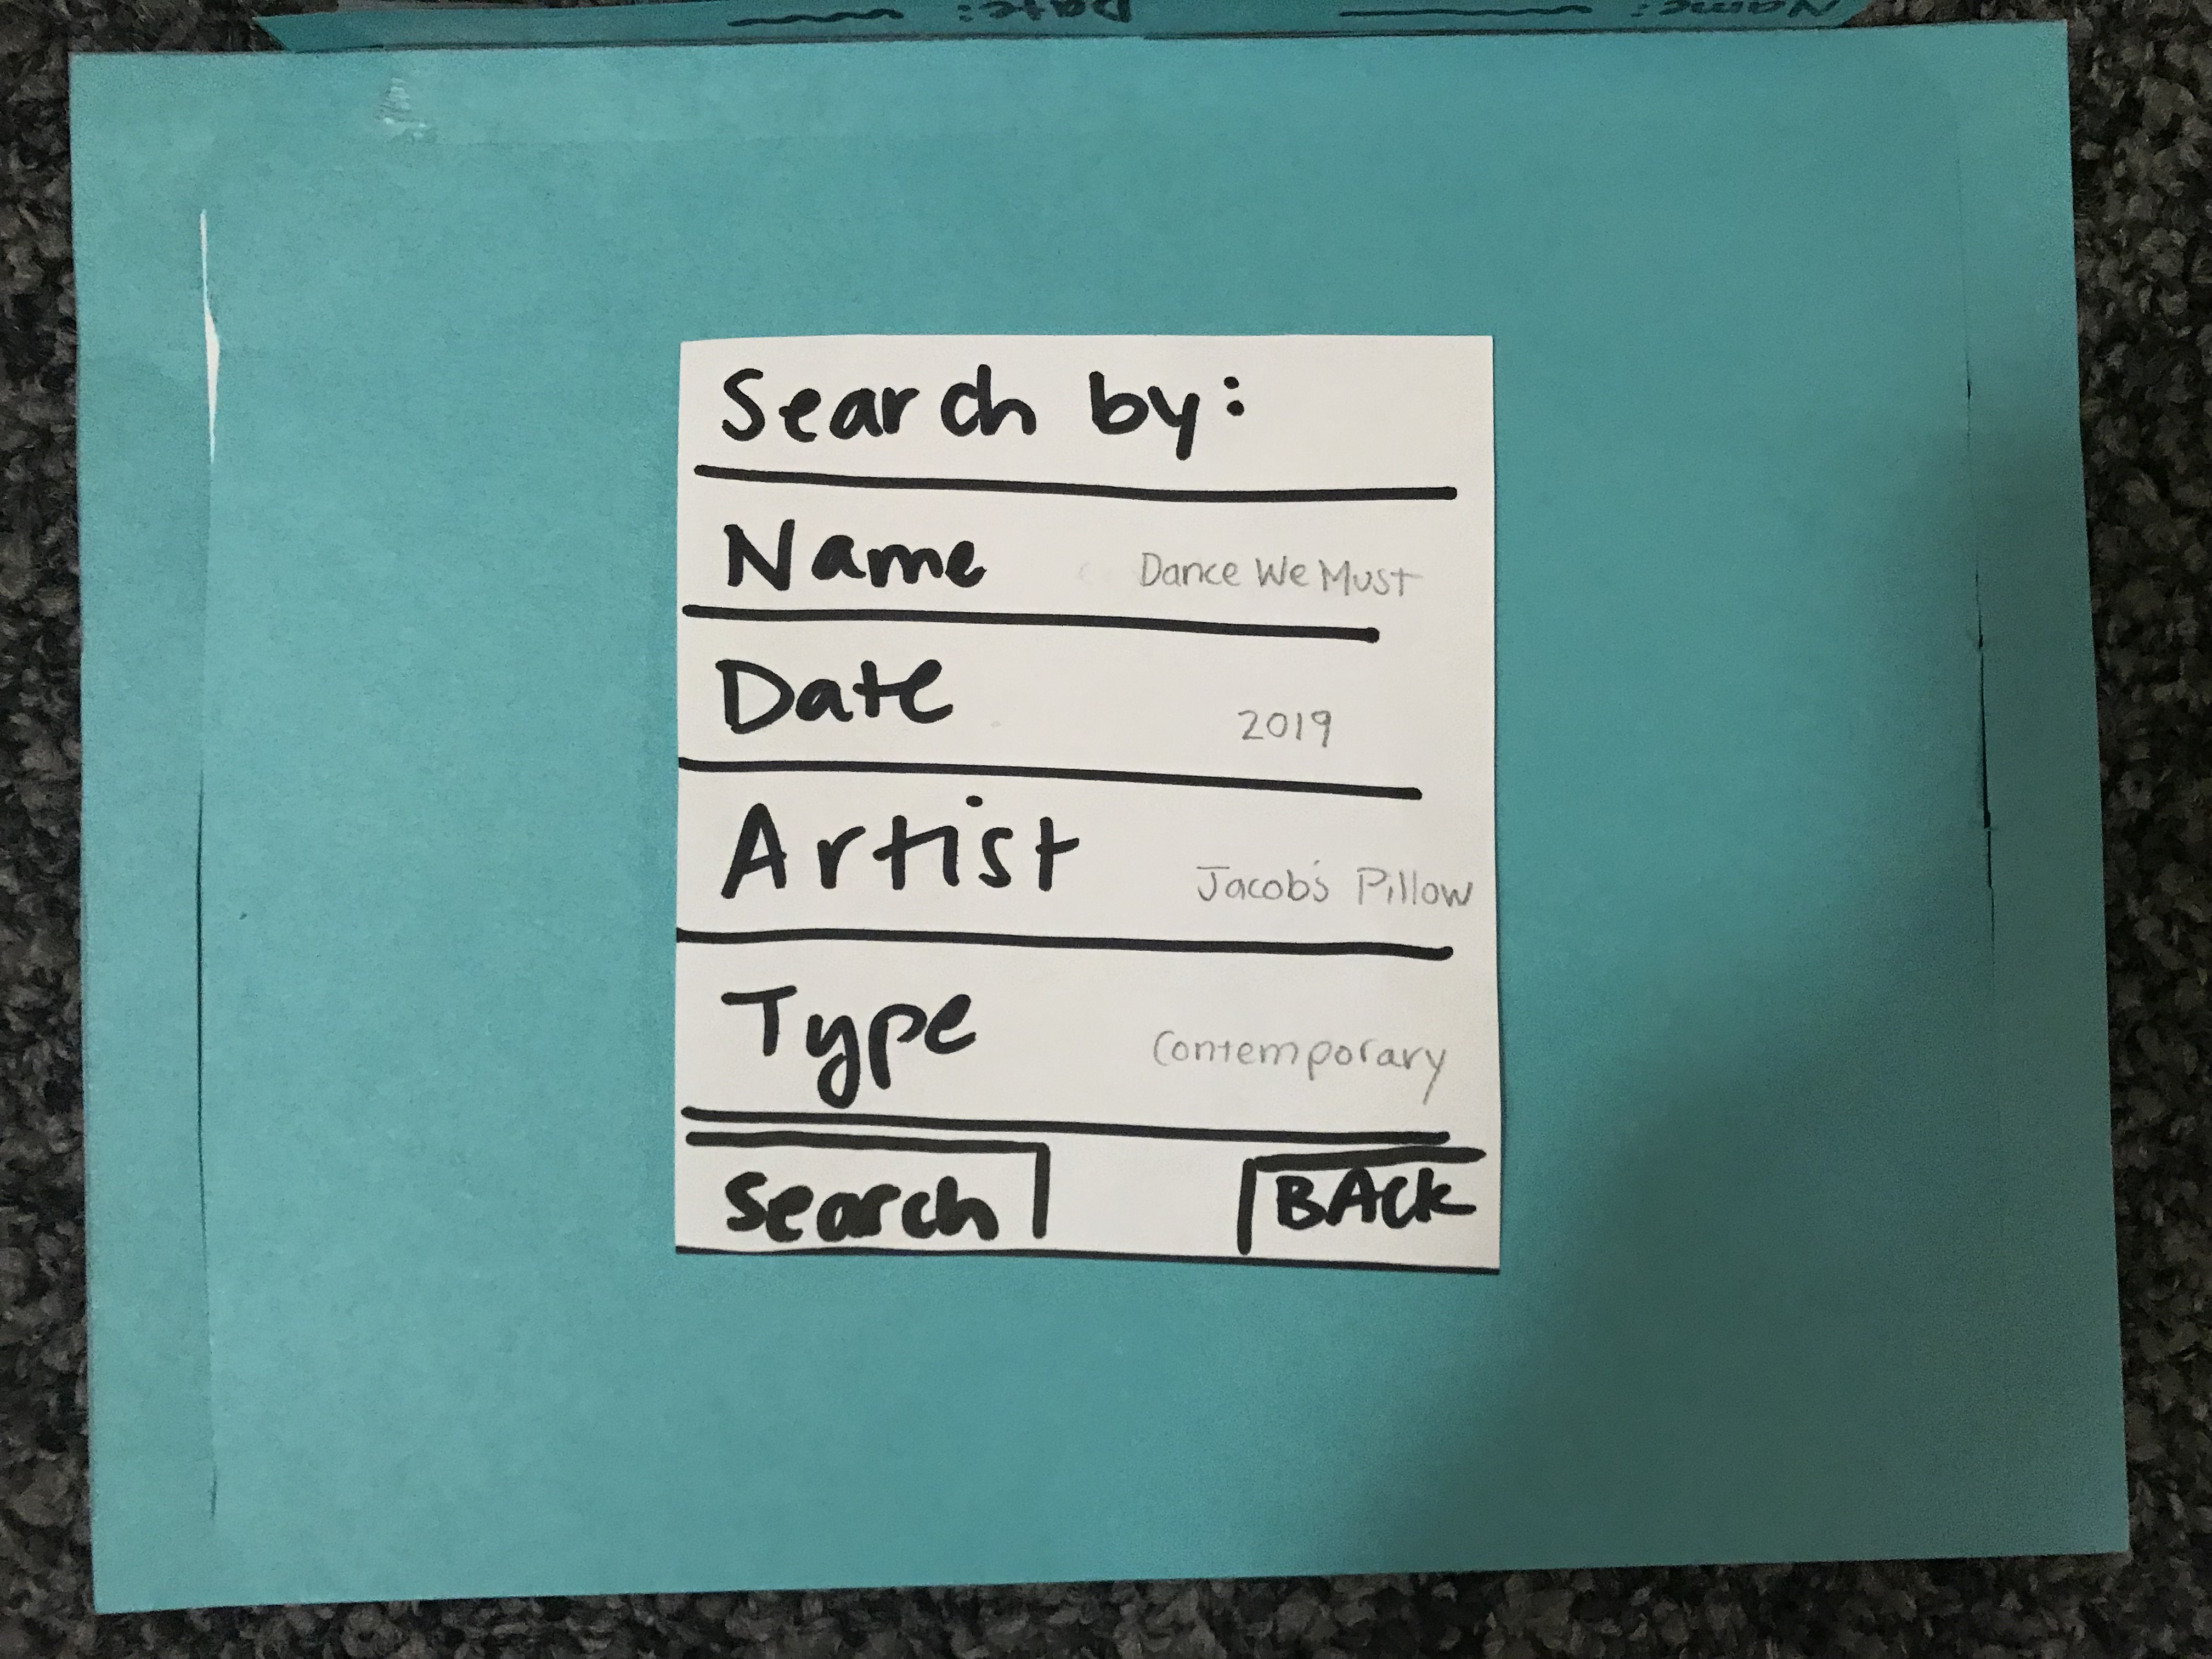 Name: Date:
Search by:
Name Dance We Must
Date 2019
Artist Jacob's Pillow
Type Contemporary
Search BACK